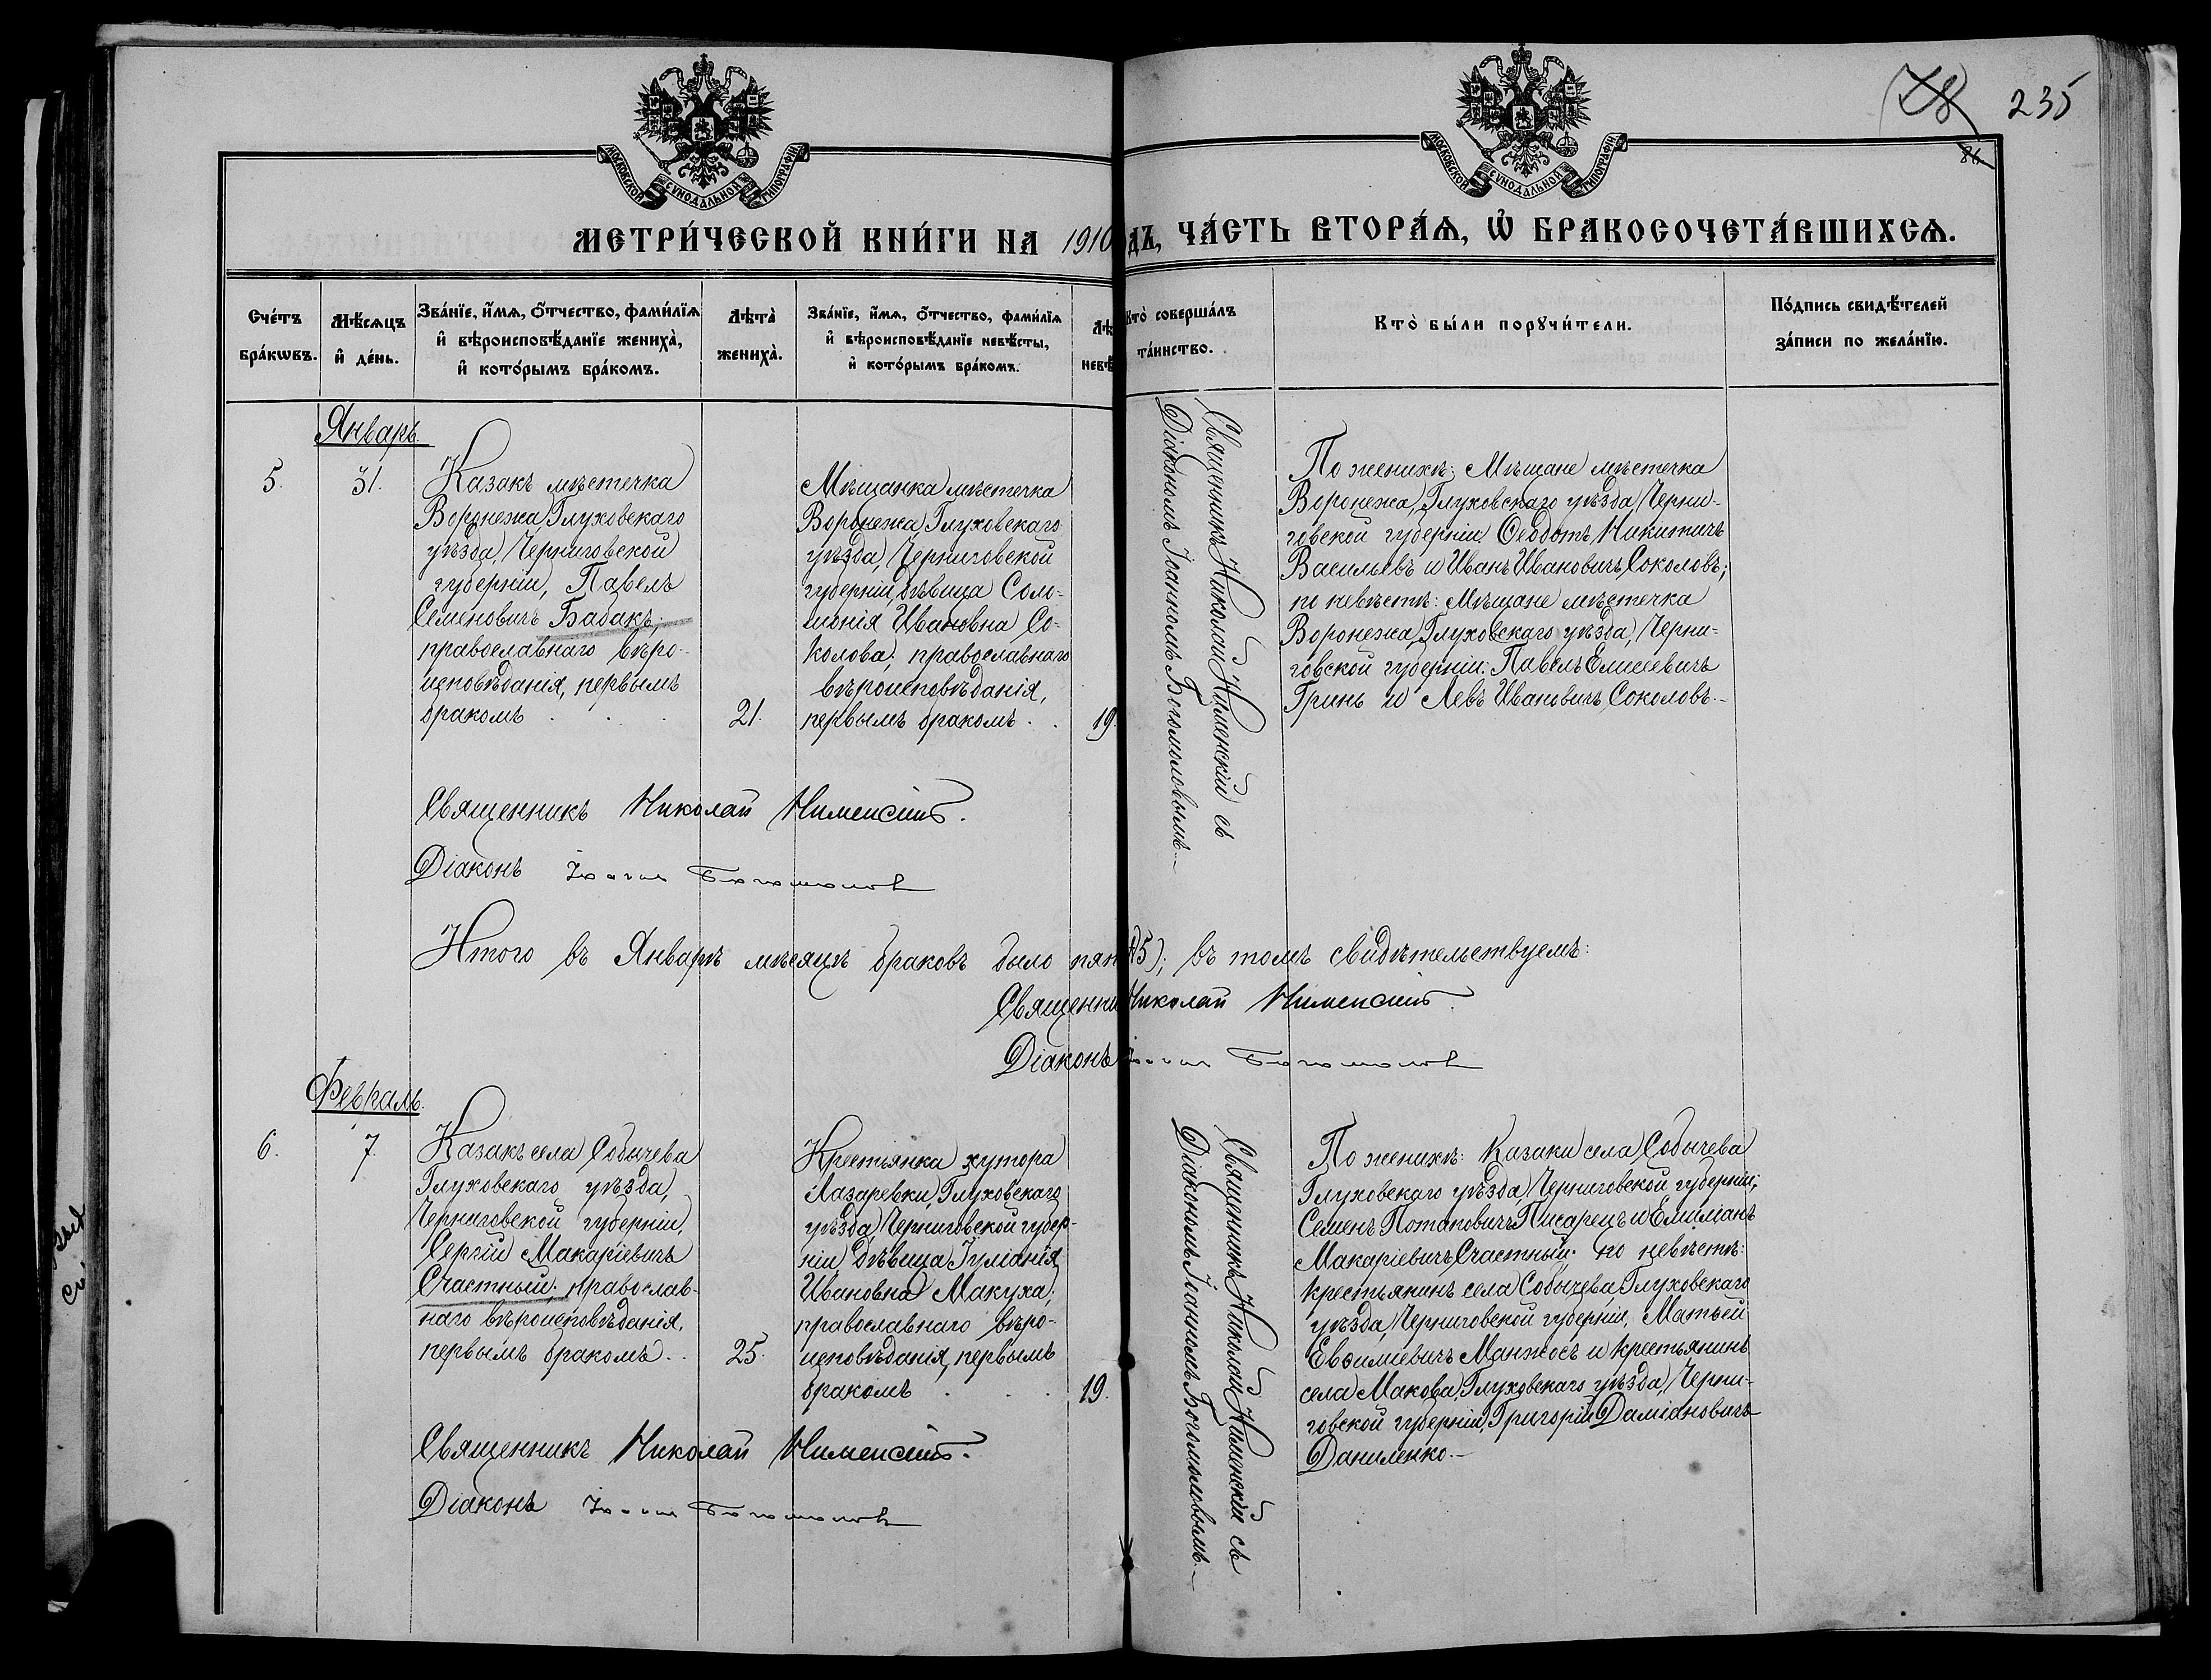 78 235
86
МОСКОВСКОЙ СУНОДАЛЬНОЙ ТИПОГРАФІИ
МОСКОВСКОЙ СУНОДАЛЬНОЙ ТИПОГРАФІИ
МЕТРИ́ЧЕСКОЙ КНИ́ГИ НА 1910 ДЪ, ЧА́СТЬ ВТОРА́Ѧ, Ѽ БРАКОСОЧЕТА́ВШИХСѦ.
Сче́тъ
бра́кѡвъ.
Мѣ́сѧцъ
и҆ де́нь.
Зва́нїе, и҆́мѧ, ѻ҆́тчество, фами́лїѧ
и҆ вѣроисповѣ́данїе жениха̀,
и҆ кото́рымъ бра́комъ.
Лѣта̀
жениха̀.
Зва́нїе, и҆́мѧ, ѻ҆́тчество, фами́лїѧ
и҆ вѣроисповѣ́данїе невѣ́сты,
и҆ кото́рымъ бра́комъ.
Лѣ
невѣ
Кто̀ соверша́лъ
та́инство.
Кто̀ бы́ли порꙋчи́тели.
По́дпись свидѣ́телей
за́писи по жела́нїю.
Январь.
5.
31.
Казакъ мѣстечка
Воронежа, Глуховскаго
уѣзда, Черниговской
губерніи, Павелъ
Семеновичъ Бабакъ;
православнаго вѣро-
исповѣданія, первымъ
бракомъ . . .
21.
Мѣщанка мѣстечка
Воронежа, Глуховскаго
уѣзда, Черниговской
губерніи, дѣвица Соло-
монія Ивановна Со-
колова; православнаго
вѣроисповѣданія,
первымъ бракомъ . .
19.
Священникъ Николай Нименскій съ
Діакономъ Іоанномъ Богомоловымъ.—
По женихѣ: Мѣщане мѣстечка
Воронежа, Глуховскаго уѣзда, Черни-
говской губерніи Ѳеодотъ Никитичъ
Васильевъ и Иванъ Ивановичъ Соколовъ;
по невѣстѣ: Мѣщане мѣстечка
Воронежа, Глуховскаго уѣзда, Черни-
говской губерніи: Павелъ Елисеевичъ
Гринь и Левъ Ивановичъ Соколовъ.—
Священникъ Николай Нименскій.
Діаконъ Іоаннъ Богомоловъ
Итого въ Январѣ мѣсяцѣ браковъ было пят (5); въ томъ свидѣтельствуемъ:
Священни Николай Нименскій.
Діаконъ Іоаннъ Богомоловъ
Февраль.
6.
7.
Казакъ села Собычева
Глуховскаго уѣзда,
Черниговской губерніи,
Сергій Макаріевичъ
Счастный; православ-
наго вѣроисповѣданія,
первымъ бракомъ . .
25.
Крестьянка хутора
Лазаревки, Глуховскаго
уѣзда, Черниговской губер-
ніи дѣвица Іуліанія
Ивановна Макуха;
православнаго вѣро-
исповѣданія, первымъ
бракомъ . . .
19.
Священникъ Николай Нименскій съ
Діакономъ Іоанномъ Богомоловымъ.—
По женихѣ: Казаки села Собычева
Глуховскаго уѣзда, Черниговской губерніи;
Семенъ Потаповичъ Писарецъ и Емиліанъ
Макаріевичъ Счастный; по невѣстѣ:
крестьянинъ села Собычева, Глуховскаго
уѣзда, Черниговской губерніи, Матѳей
Евѳиміевичъ Манжосъ и крестьянинъ
села Макова, Глуховскаго уѣзда, Черни-
говской губерніи, Григорій Даміановичъ
Даниленко.—
Священникъ Николай Нименскій.
Діаконъ Іоаннъ Богомоловъ